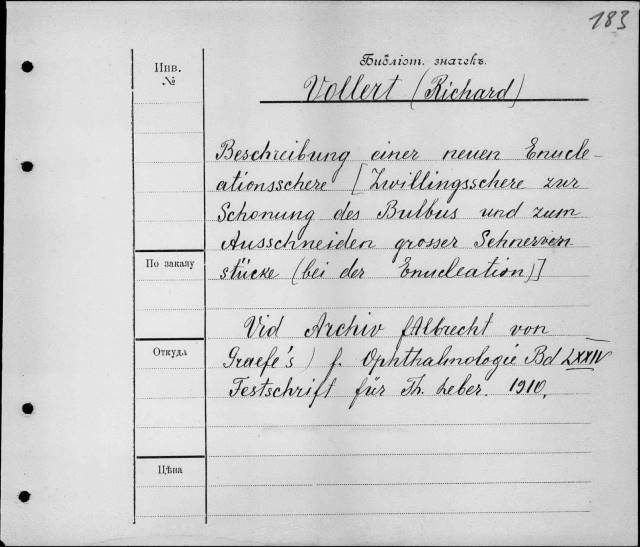 183
Инв.
№
Библіот. значекъ.
Vollert (Richard)
Beschreibung einer neuen Enucle-
ationsschere [Zwillingsschere zur
Schonung des Bulbus und zum
Ausschneiden grosser Sehnerven
stücke (bei der Enucleation)]
По заказу
Vid Archiv (Albrecht von
Graefe's) f. Ophthalmologie Bd LXXIV
Откуда
Festschrift für Th. Leber. 1910.
Цѣна